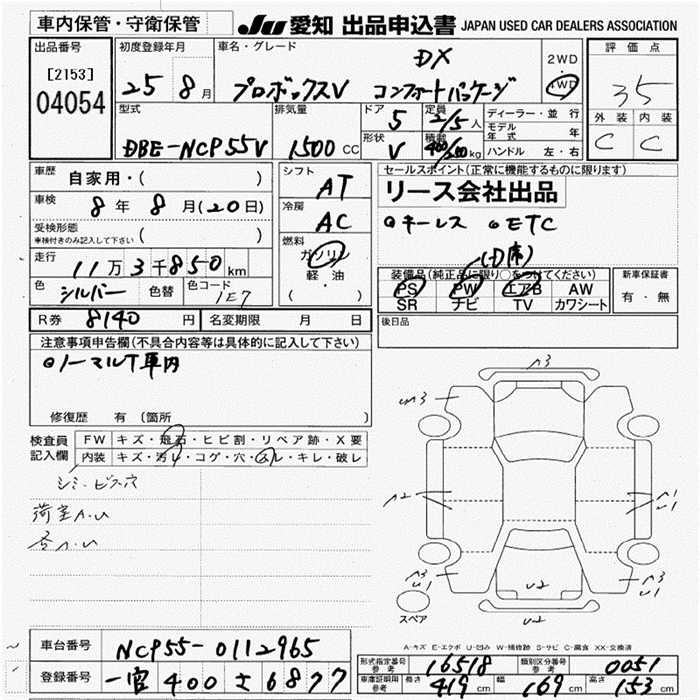 車内保管・守衛保管
JU 愛知 出品申込書 JAPAN USED CAR DEALERS ASSOCIATION
出品番号
[2153]
04054
初度登録年月
25 8月
車名・グレード
DX
プロボックスV コンフォートパッケージ
2WD
4WD
評価点
35
外装 内装
C C
型式
DBE-NCP55V
排気量
1500 CC
ドア
5
形状
V
定員
2/5人
積載
400/250kg
ディーラー・並行
モデル年式 年
ハンドル 左・右
車歴
自家用・( )
車検
8年 8月(20日)
受検形態
車検付きのみ記入して下さい ( )
走行
11万3千850km
色
シルバー 色替
色コード
1E7
シフト
AT
冷房
AC
燃料
ガソリン
軽油
( ・ )
セールスポイント(正常に機能するものに限ります)
リース会社出品
キーレス ETC
(D席)
装備品(純正品に限り○をつけてください)
PS PW エアB AW
SR ナビ TV カワシート
新車保証書
有・無
R券 8140円 名変期限 月 日
後日品
注意事項申告欄(不具合内容等は具体的に記入して下さい)
ノーマルT車内
修復歴 有(箇所 )
検査員記入欄
FW キズ・飛石・ヒビ割・リペア跡・X要
内装 キズ・汚レ・コゲ・穴・スレ・キレ・破レ
シミ・ビス穴
荷室A.U
A3
U2
U2
スペア
A-キズ E-エクボ U-凹み W-補修跡 S-サビ C-腐食 XX-交換済
車台番号 NCP55-0112965
登録番号 一宮 400 さ 6877
形式指定番号 参考 16518 類別区分番号 参考 0051
車庫証明用 参考 長さ 419cm 幅 169cm 高さ 153cm